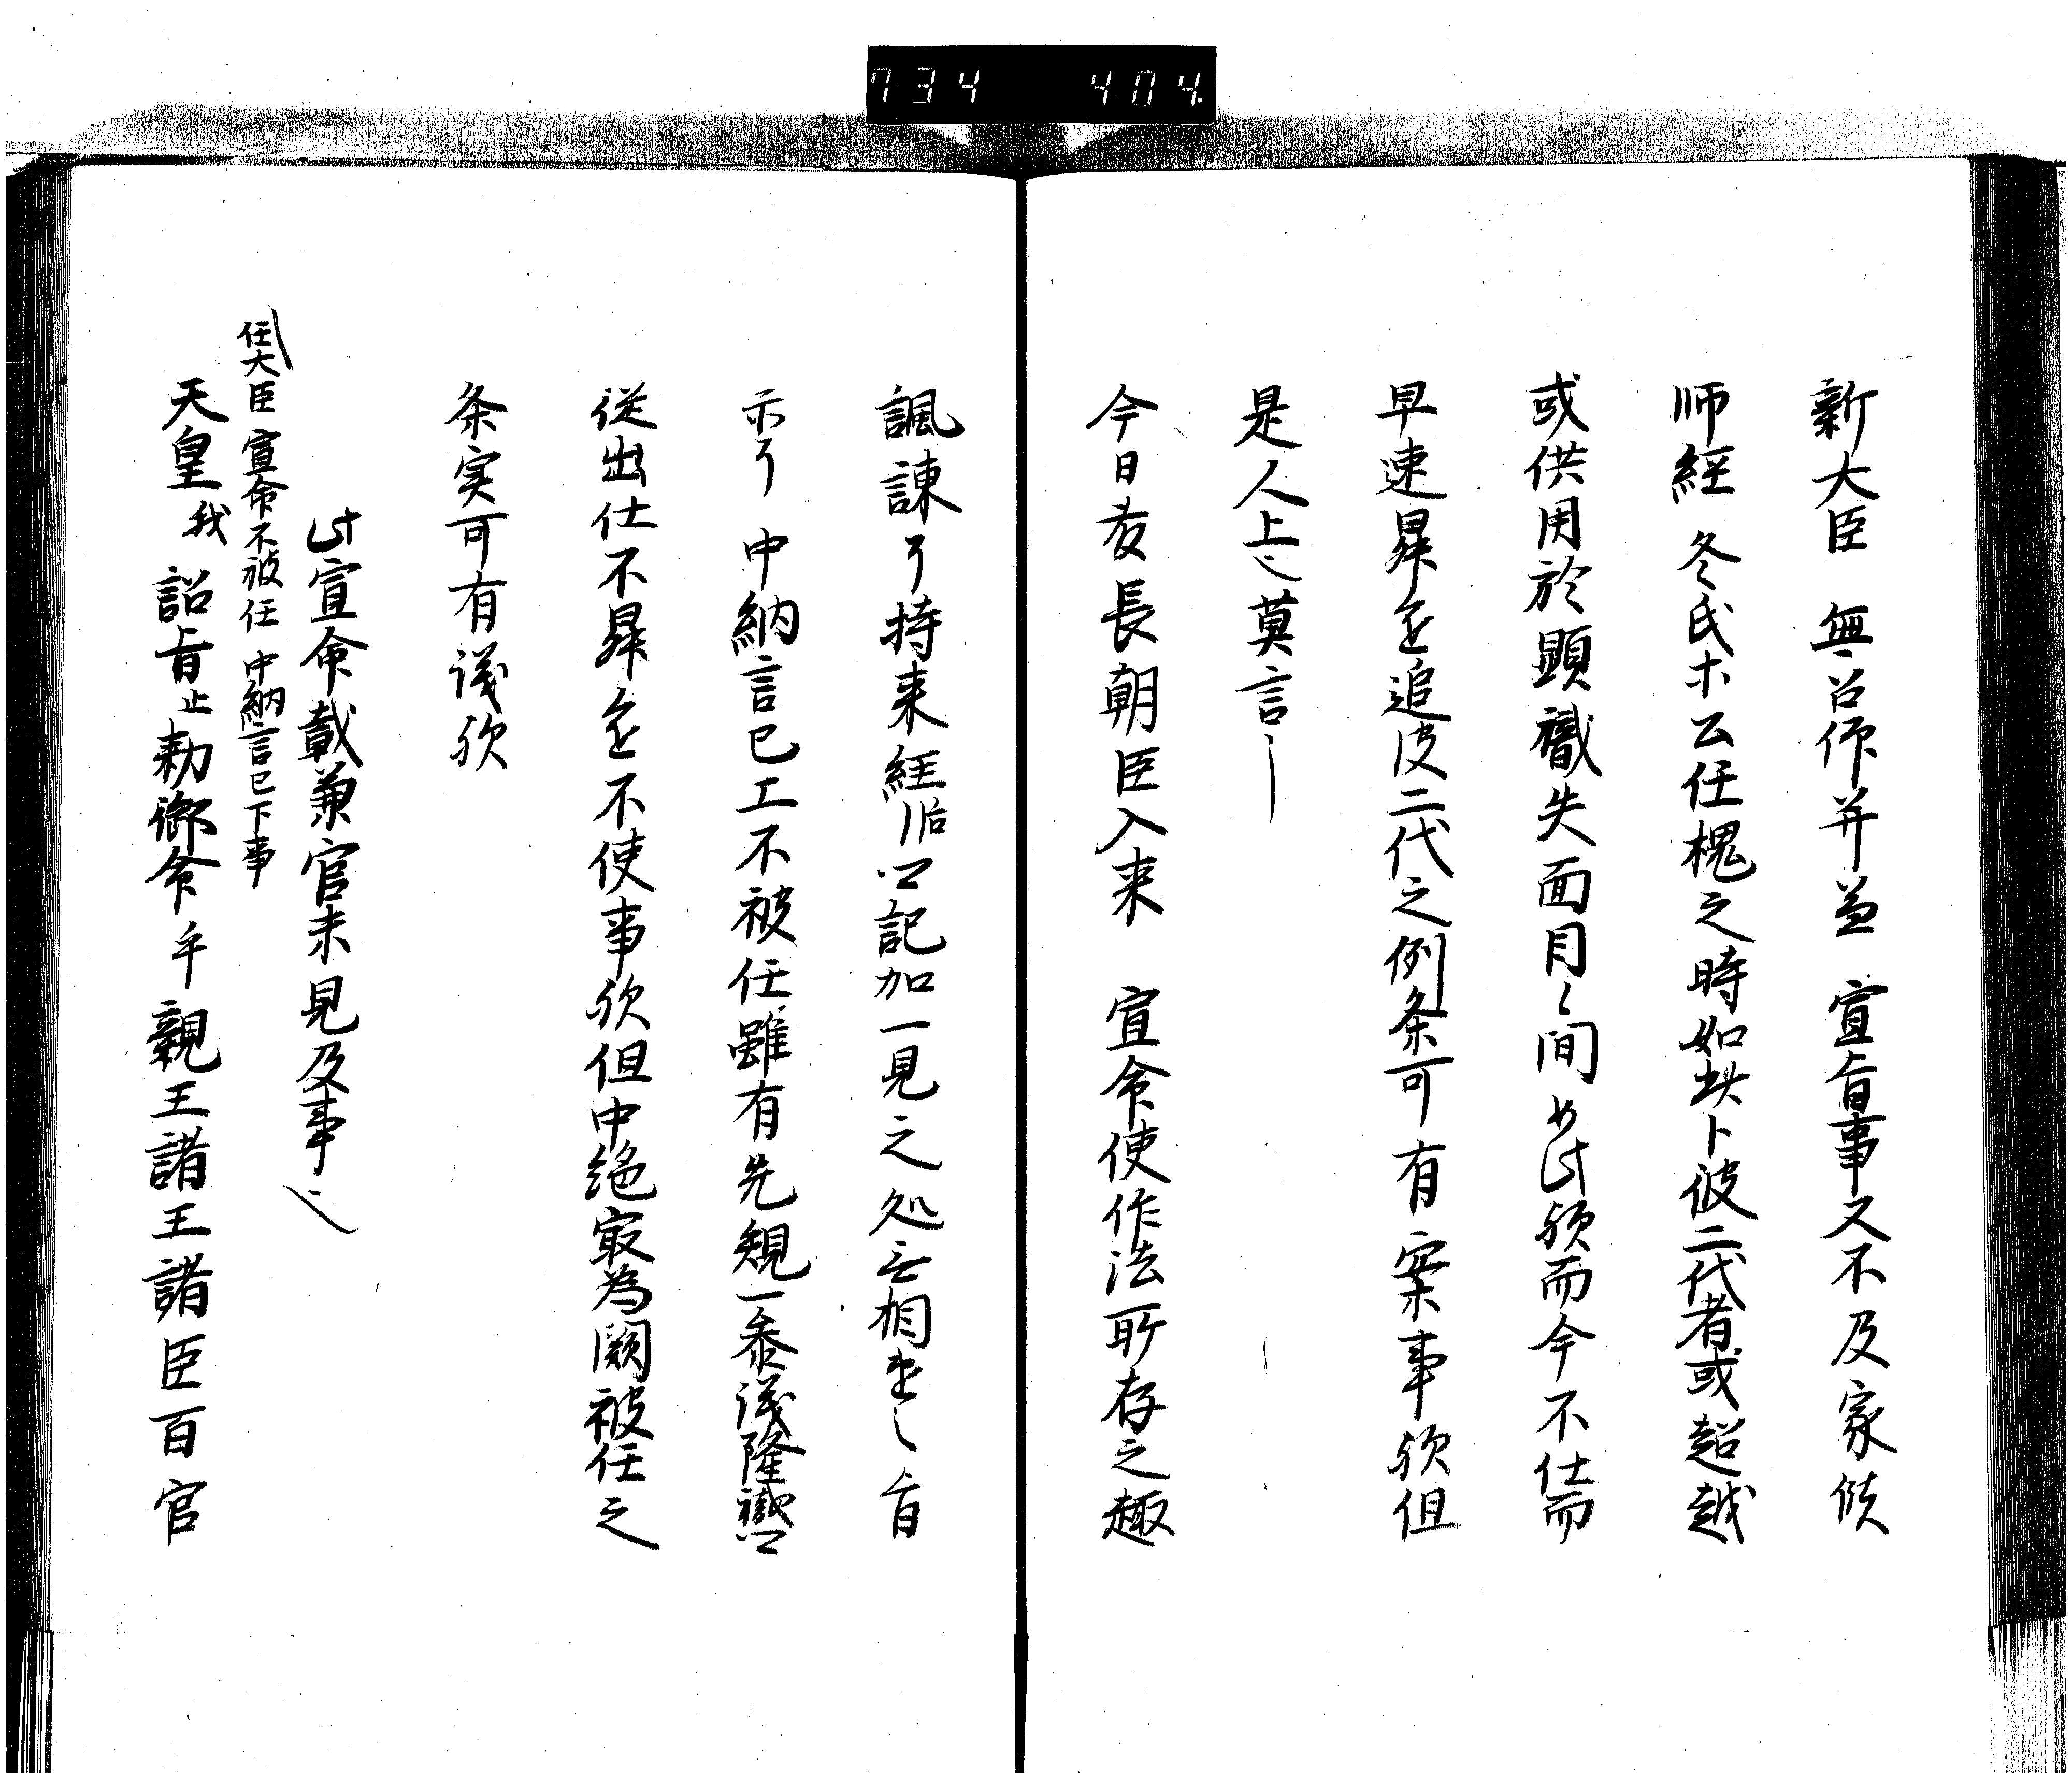 734 404
新大臣 無召仰并兼 宣旨事又不及家候
師経 冬氏ホ公任槐之時如此卜彼二代者或超越
或供用於顕職失面目之間如此欤而今不仕而
早速昇進追彼二代之例条可有案事欤但
是人上也莫言〻
今日友長朝臣入来 宣命使作法所存之趣
諷諫了持来経治卿記加一見之処無相違之旨
示了 中納言已上不被任雖有先規一参議隆職卿
従出仕不昇進不使事欤但中絶寂為闕被任之
条実可有議欤
此宣命載兼官未見及事也
任大臣 宣命不被任 中納言已下事
天皇我 詔旨止勅御命乎親王諸王諸臣百官